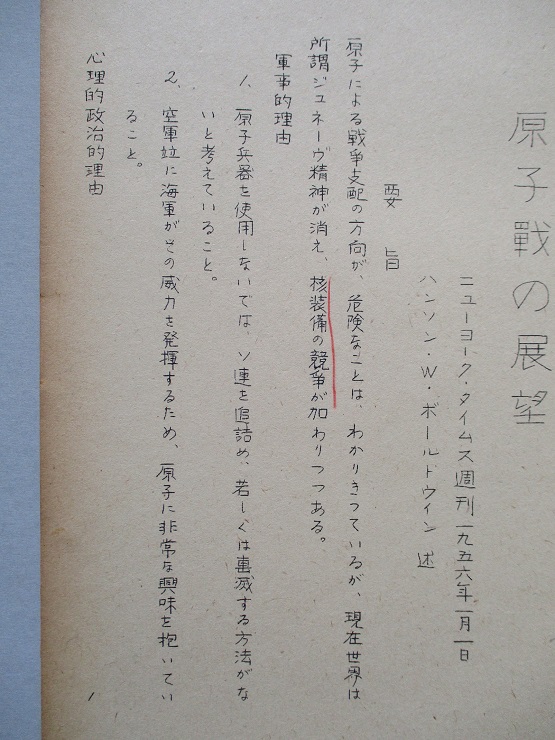 原子戰の展望
ニューヨーク・タイムス週刊一九五六年一月一日
ハンソン・W・ボールドウイン 述
要旨
原子による戦争支配の方向が、危険なことは、わかりきつているが、現在世界は
所謂ジュネーヴ精神が消え、核装備の競争が加わりつつある。
軍事的理由
1、原子兵器を使用しないでは、ソ連を追詰め、若しくは裏滅する方法がな
いと考えていること。
2、空軍竝に海軍がその威力を発揮するため、原子に非常な興味を抱いてい
ること。
心理的政治的理由
1